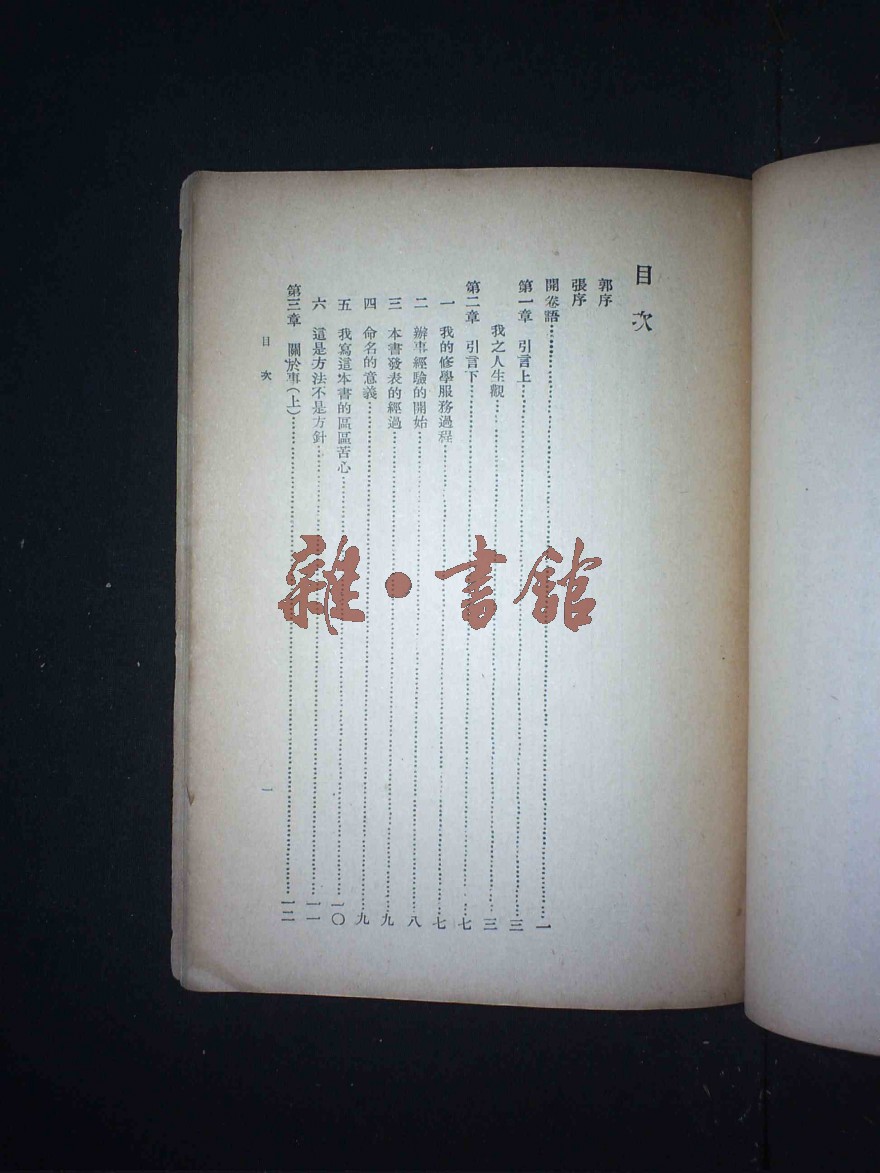 目次
郭序
張序
開卷語……一
第一章 引言上……三
我之人生觀……三
第二章 引言下……七
一 我的修學服務過程……七
二 辦事經驗的開始……八
三 本書發表的經過……九
四 命名的意義……九
五 我寫這本書的區區苦心……一〇
六 這是方法不是方針……一一
第三章 關於事(上)……一二
目次
一
雜·書館